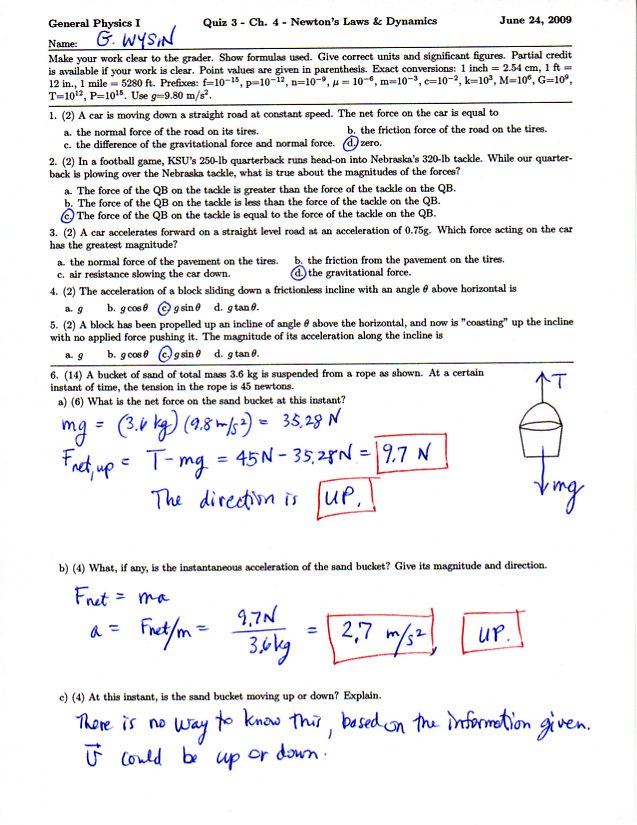 General Physics I Quiz 3 - Ch. 4 - Newton's Laws & Dynamics June 24, 2009
Name: G. WYSIN
Make your work clear to the grader. Show formulas used. Give correct units and significant figures. Partial credit
is available if your work is clear. Point values are given in parenthesis. Exact conversions: 1 inch = 2.54 cm, 1 ft =
12 in., 1 mile = 5280 ft. Prefixes: f=10⁻¹⁵, p=10⁻¹², n=10⁻⁹, μ = 10⁻⁶, m=10⁻³, c=10⁻², k=10³, M=10⁶, G=10⁹,
T=10¹², P=10¹⁵. Use g=9.80 m/s².
1. (2) A car is moving down a straight road at constant speed. The net force on the car is equal to
a. the normal force of the road on its tires. b. the friction force of the road on the tires.
c. the difference of the gravitational force and normal force. d. zero.
2. (2) In a football game, KSU's 250-lb quarterback runs head-on into Nebraska's 320-lb tackle. While our quarter-
back is plowing over the Nebraska tackle, what is true about the magnitudes of the forces?
a. The force of the QB on the tackle is greater than the force of the tackle on the QB.
b. The force of the QB on the tackle is less than the force of the tackle on the QB.
c. The force of the QB on the tackle is equal to the force of the tackle on the QB.
3. (2) A car accelerates forward on a straight level road at an acceleration of 0.75g. Which force acting on the car
has the greatest magnitude?
a. the normal force of the pavement on the tires. b. the friction from the pavement on the tires.
c. air resistance slowing the car down. d. the gravitational force.
4. (2) The acceleration of a block sliding down a frictionless incline with an angle θ above horizontal is
a. g b. g cos θ c. g sin θ d. g tan θ.
5. (2) A block has been propelled up an incline of angle θ above the horizontal, and now is "coasting" up the incline
with no applied force pushing it. The magnitude of its acceleration along the incline is
a. g b. g cos θ c. g sin θ d. g tan θ.
6. (14) A bucket of sand of total mass 3.6 kg is suspended from a rope as shown. At a certain
instant of time, the tension in the rope is 45 newtons.
a) (6) What is the net force on the sand bucket at this instant?
T
mg = (3.6 kg)(9.8 m/s²) = 35.28 N
Fnet,up = T - mg = 45N - 35.28N = 9.7 N
mg
The direction is UP.
b) (4) What, if any, is the instantaneous acceleration of the sand bucket? Give its magnitude and direction.
Fnet = ma
a = Fnet/m = 9.7N / 3.6kg = 2.7 m/s², UP.
c) (4) At this instant, is the sand bucket moving up or down? Explain.
There is no way to know this, based on the information given.
v⃗ could be up or down.